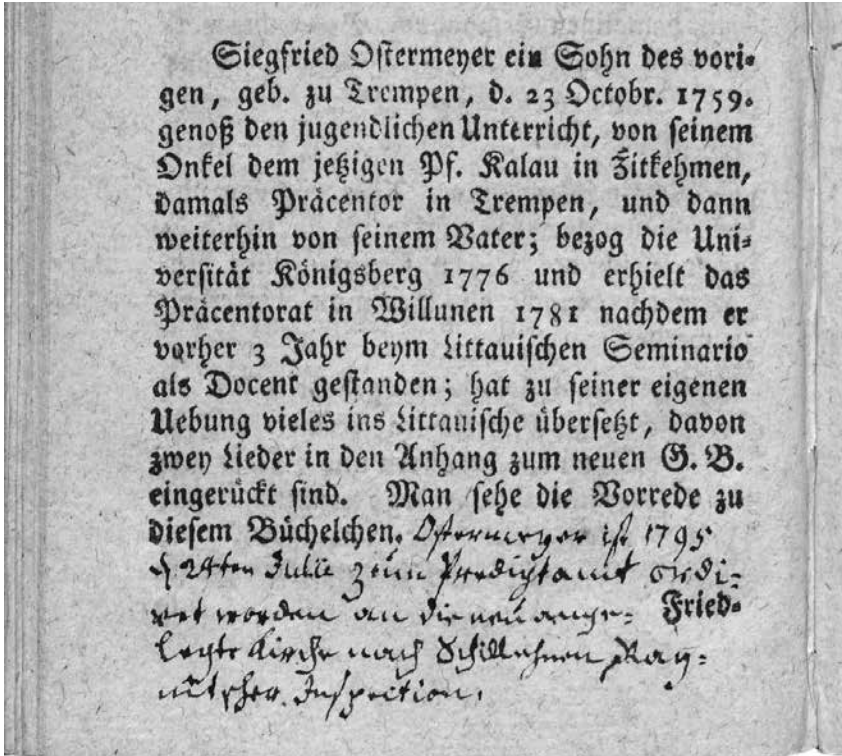 Siegfried Ostermeyer ein Sohn des vori-
gen, geb. zu Trempen, d. 23 Octobr. 1759.
genoß den jugendlichen Unterricht, von seinem
Onkel dem jetzigen Pf. Kalau in Zitkehmen,
damals Präcentor in Trempen, und dann
weiterhin von seinem Vater; bezog die Uni-
versität Königsberg 1776 und erhielt das
Präcentorat in Willunen 1781 nachdem er
vorher 3 Jahr beym Littauischen Seminario
als Docent gestanden; hat zu seiner eigenen
Uebung vieles ins Littauische übersetzt, davon
zwey Lieder in den Anhang zum neuen G. B.
eingerückt sind. Man sehe die Vorrede zu
diesem Büchelchen. Ostermeyer ist 1795
d. 24ten Julii zum Predigtamt ordi-
ret worden an die neu ange- Fried-
legte Kirche nach Schillehnen Rag-
nitscher Inspection.